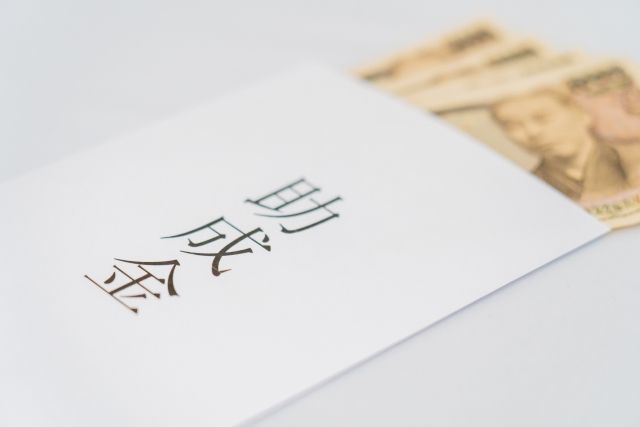 助成金